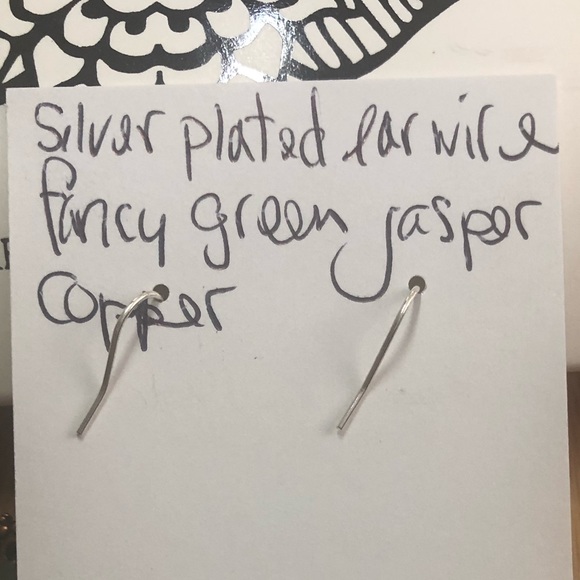 Silver plated ear wire
fancy green jasper
copper